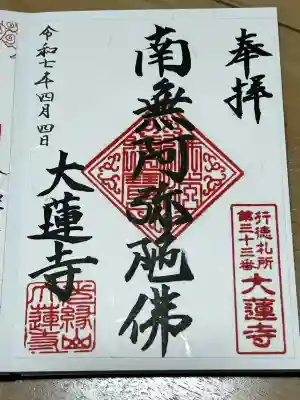 奉拝
行徳札所
第三十三番
大蓮寺
南無阿弥陀佛
令和七年四月四日
大蓮寺